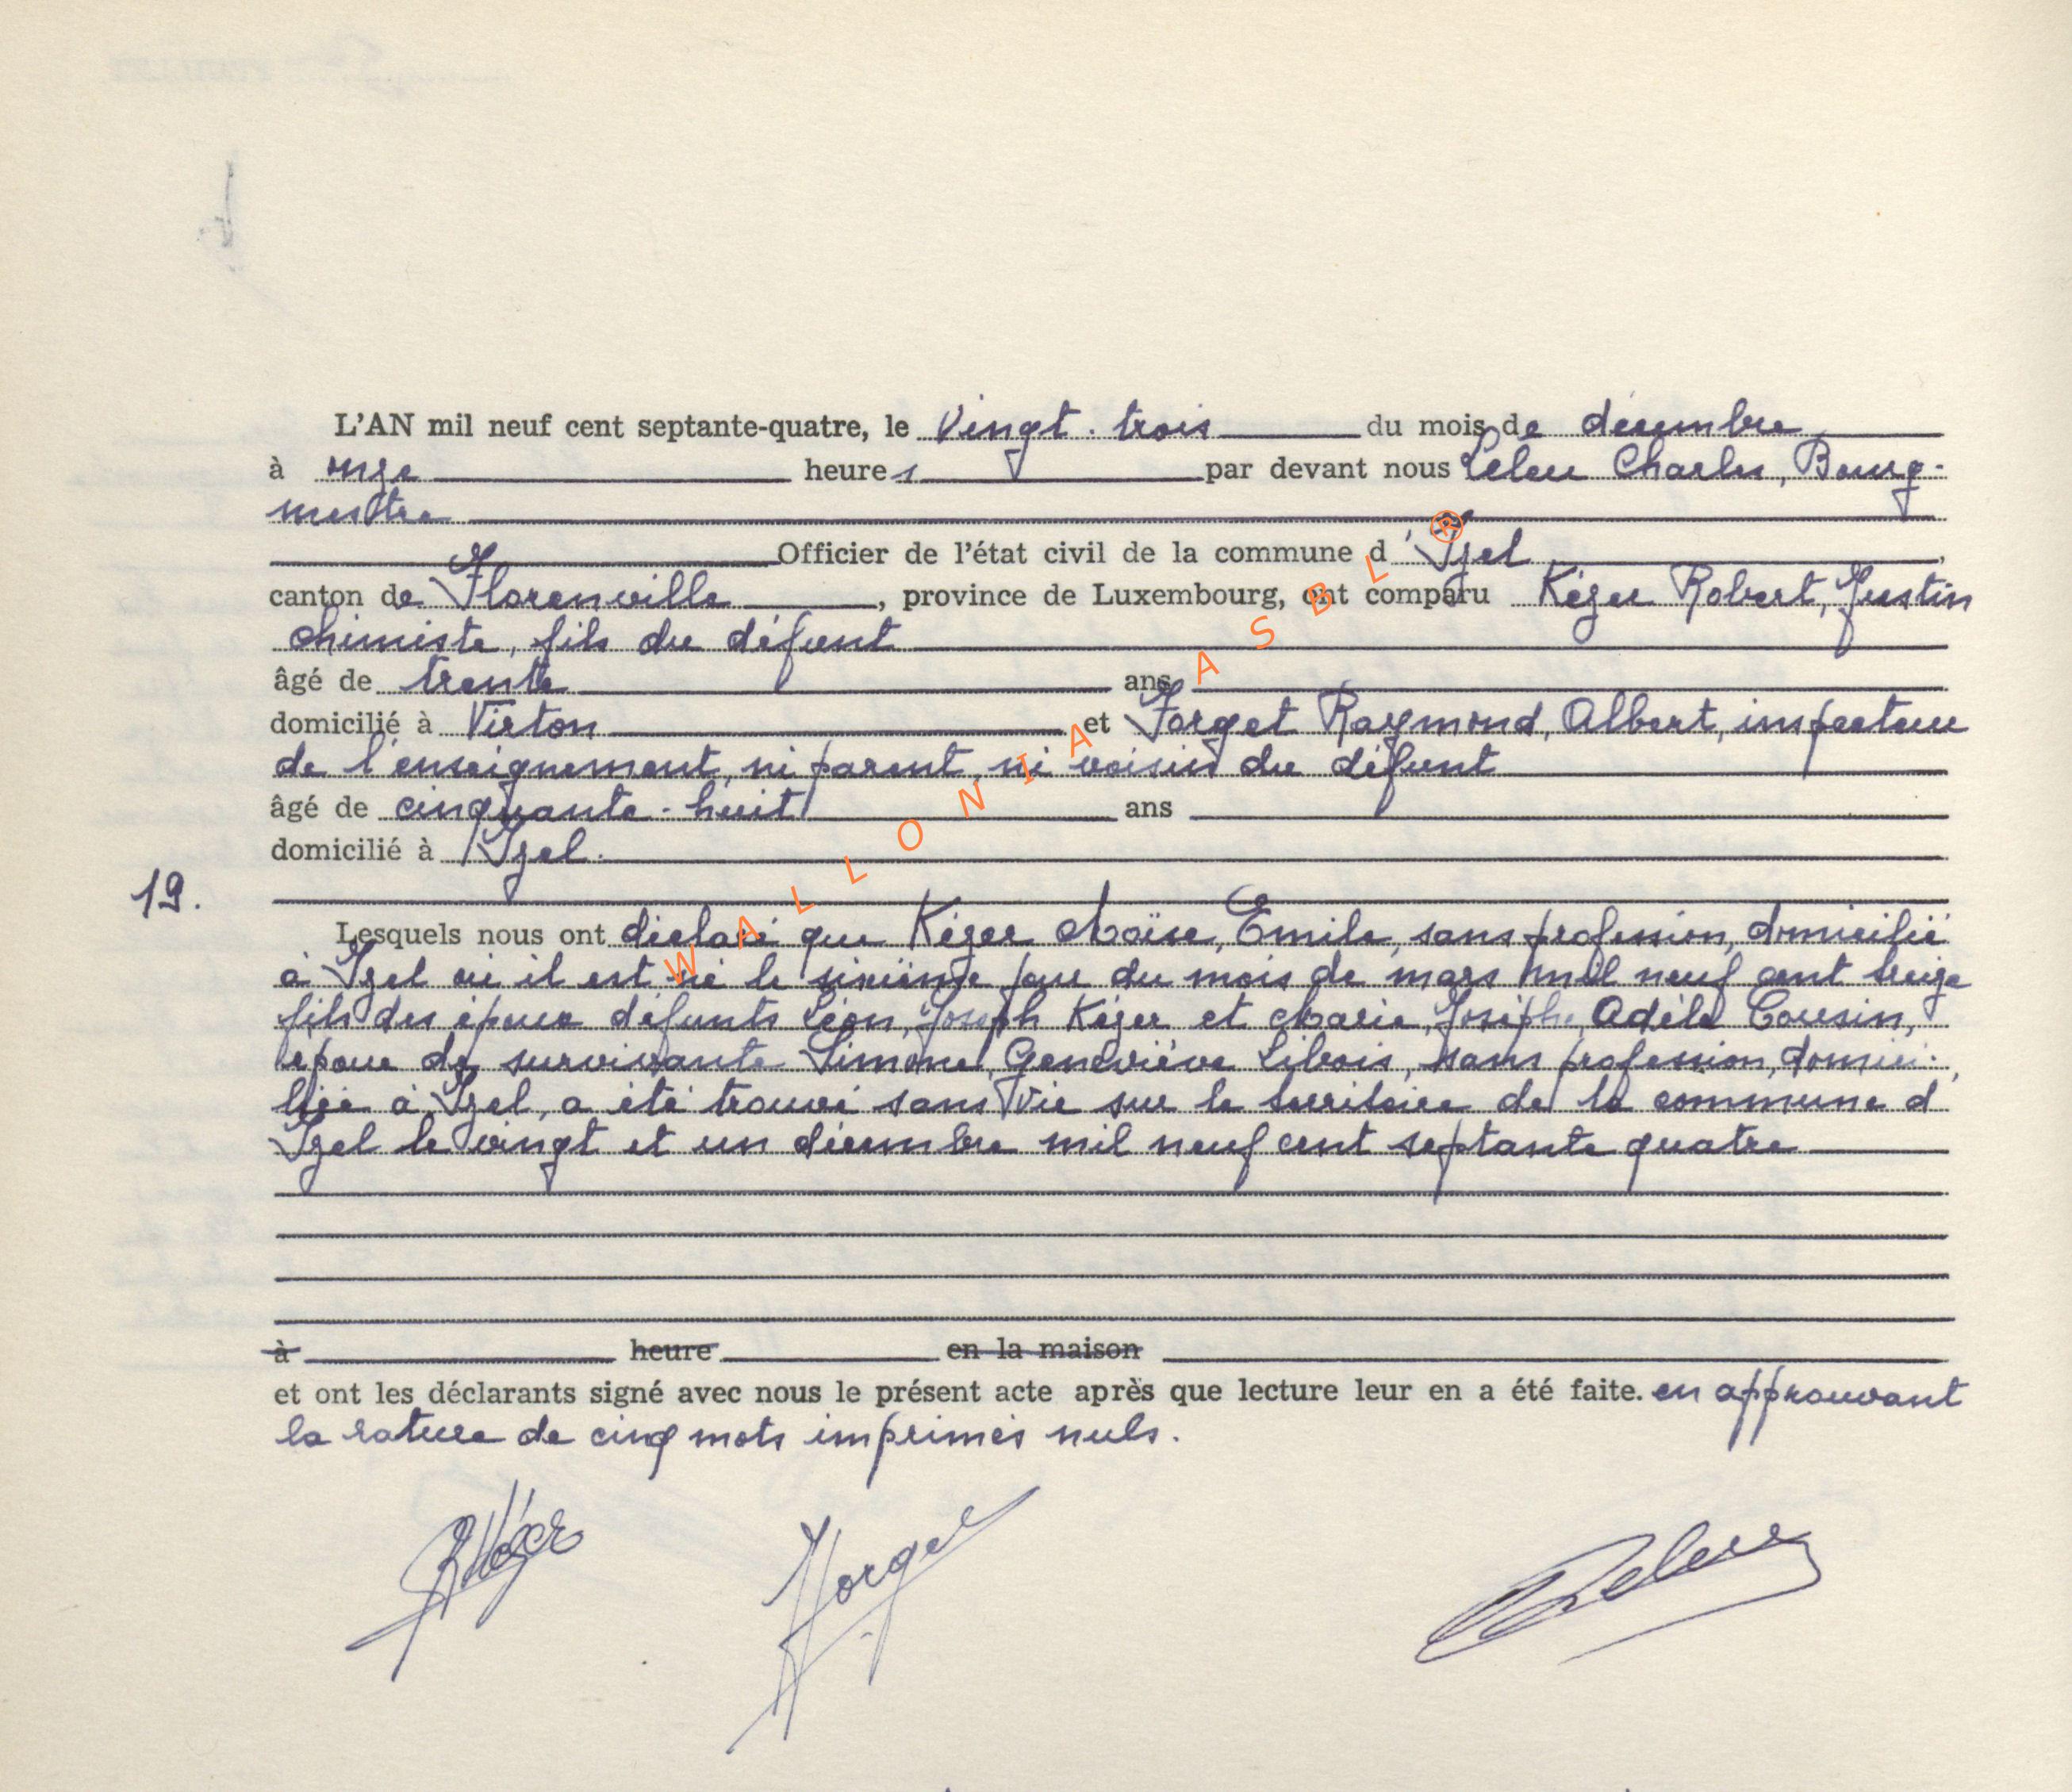 L'AN mil neuf cent septante-quatre, le Vingt-trois du mois de décembre
à onze heures par devant nous Leleu Charles, Bourg-
mestre
Officier de l'état civil de la commune d'Izel,
canton de Florenville, province de Luxembourg, ont comparu Kéger Robert, Justin
chimiste, fils du défunt
âgé de trente ans
domicilié à Virton et Forget Raymond, Albert, inspecteur
de l'enseignement, ni parent, ni voisin du défunt
âgé de cinquante-huit ans
domicilié à Izel.
19.
Lesquels nous ont déclaré que Kéger Moïse, Emile, sans profession, domicilié
à Izel où il est né le sixième jour du mois de mars mil neuf cent treize
fils des époux défunts Léon, Joseph Kéger et Marie, Josèphe, Adèle Cousin,
époux de survivante Simone, Geneviève Libois, sans profession, domici-
liée à Izel, a été trouvé sans vie sur le territoire de la commune d
Izel le vingt et un décembre mil neuf cent septante quatre
à heure en la maison
et ont les déclarants signé avec nous le présent acte après que lecture leur en a été faite. en approuvant
la rature de cinq mots imprimés nuls.
RKéger Forget Leleu
WALLONIA ASBL ®